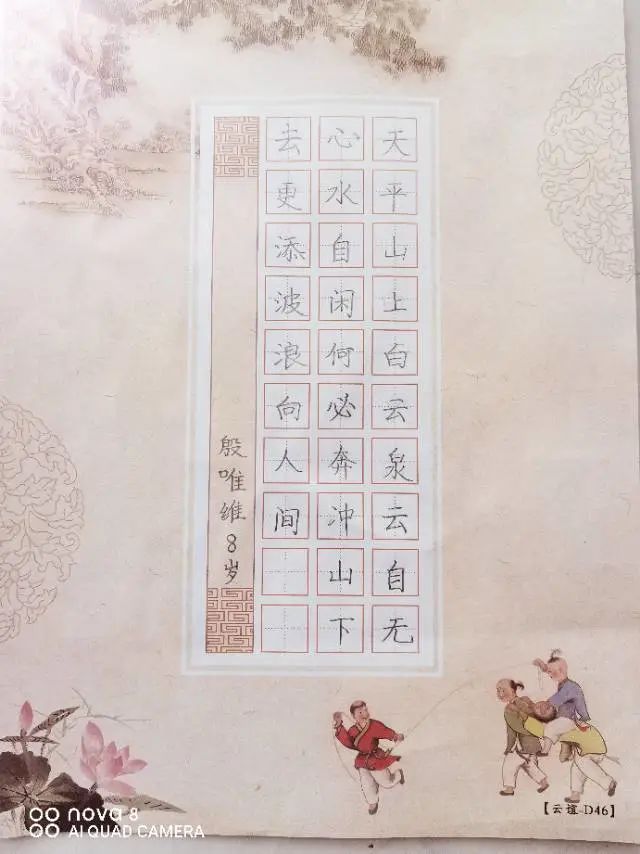 天平山上白云泉云自无
心水自闲何必奔冲山下
去更添波浪向人间
殷唯维8岁
【云谊-D46】
nova 8
AI QUAD CAMERA